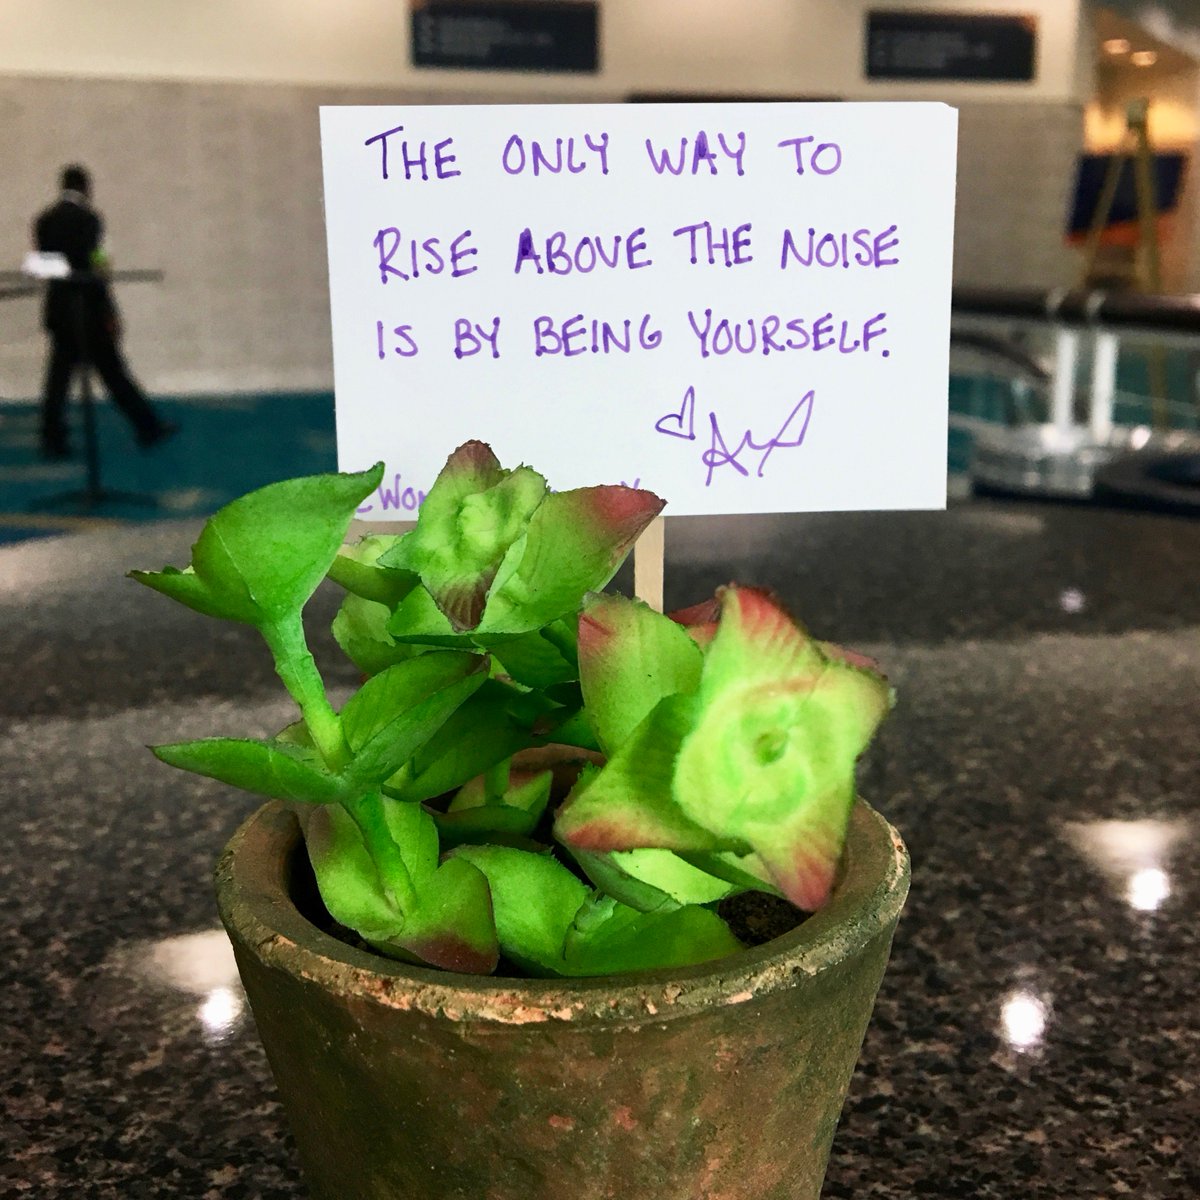 THE ONLY WAY TO
RISE ABOVE THE NOISE
IS BY BEING YOURSELF.